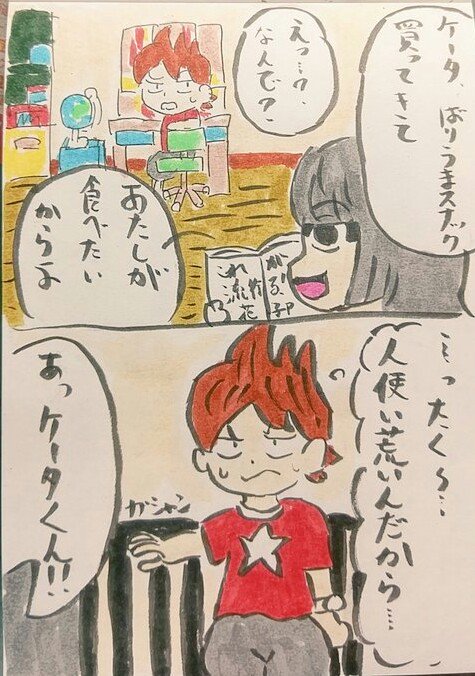 ケータ、ばりうまスナック
買ってきて
えっ…？、
なんで？、
あたしが
食べたい
からよ
がる子
これ
流花
…ったく〜…
人使い荒いんだから…
ガシャン
あっケータくん!!